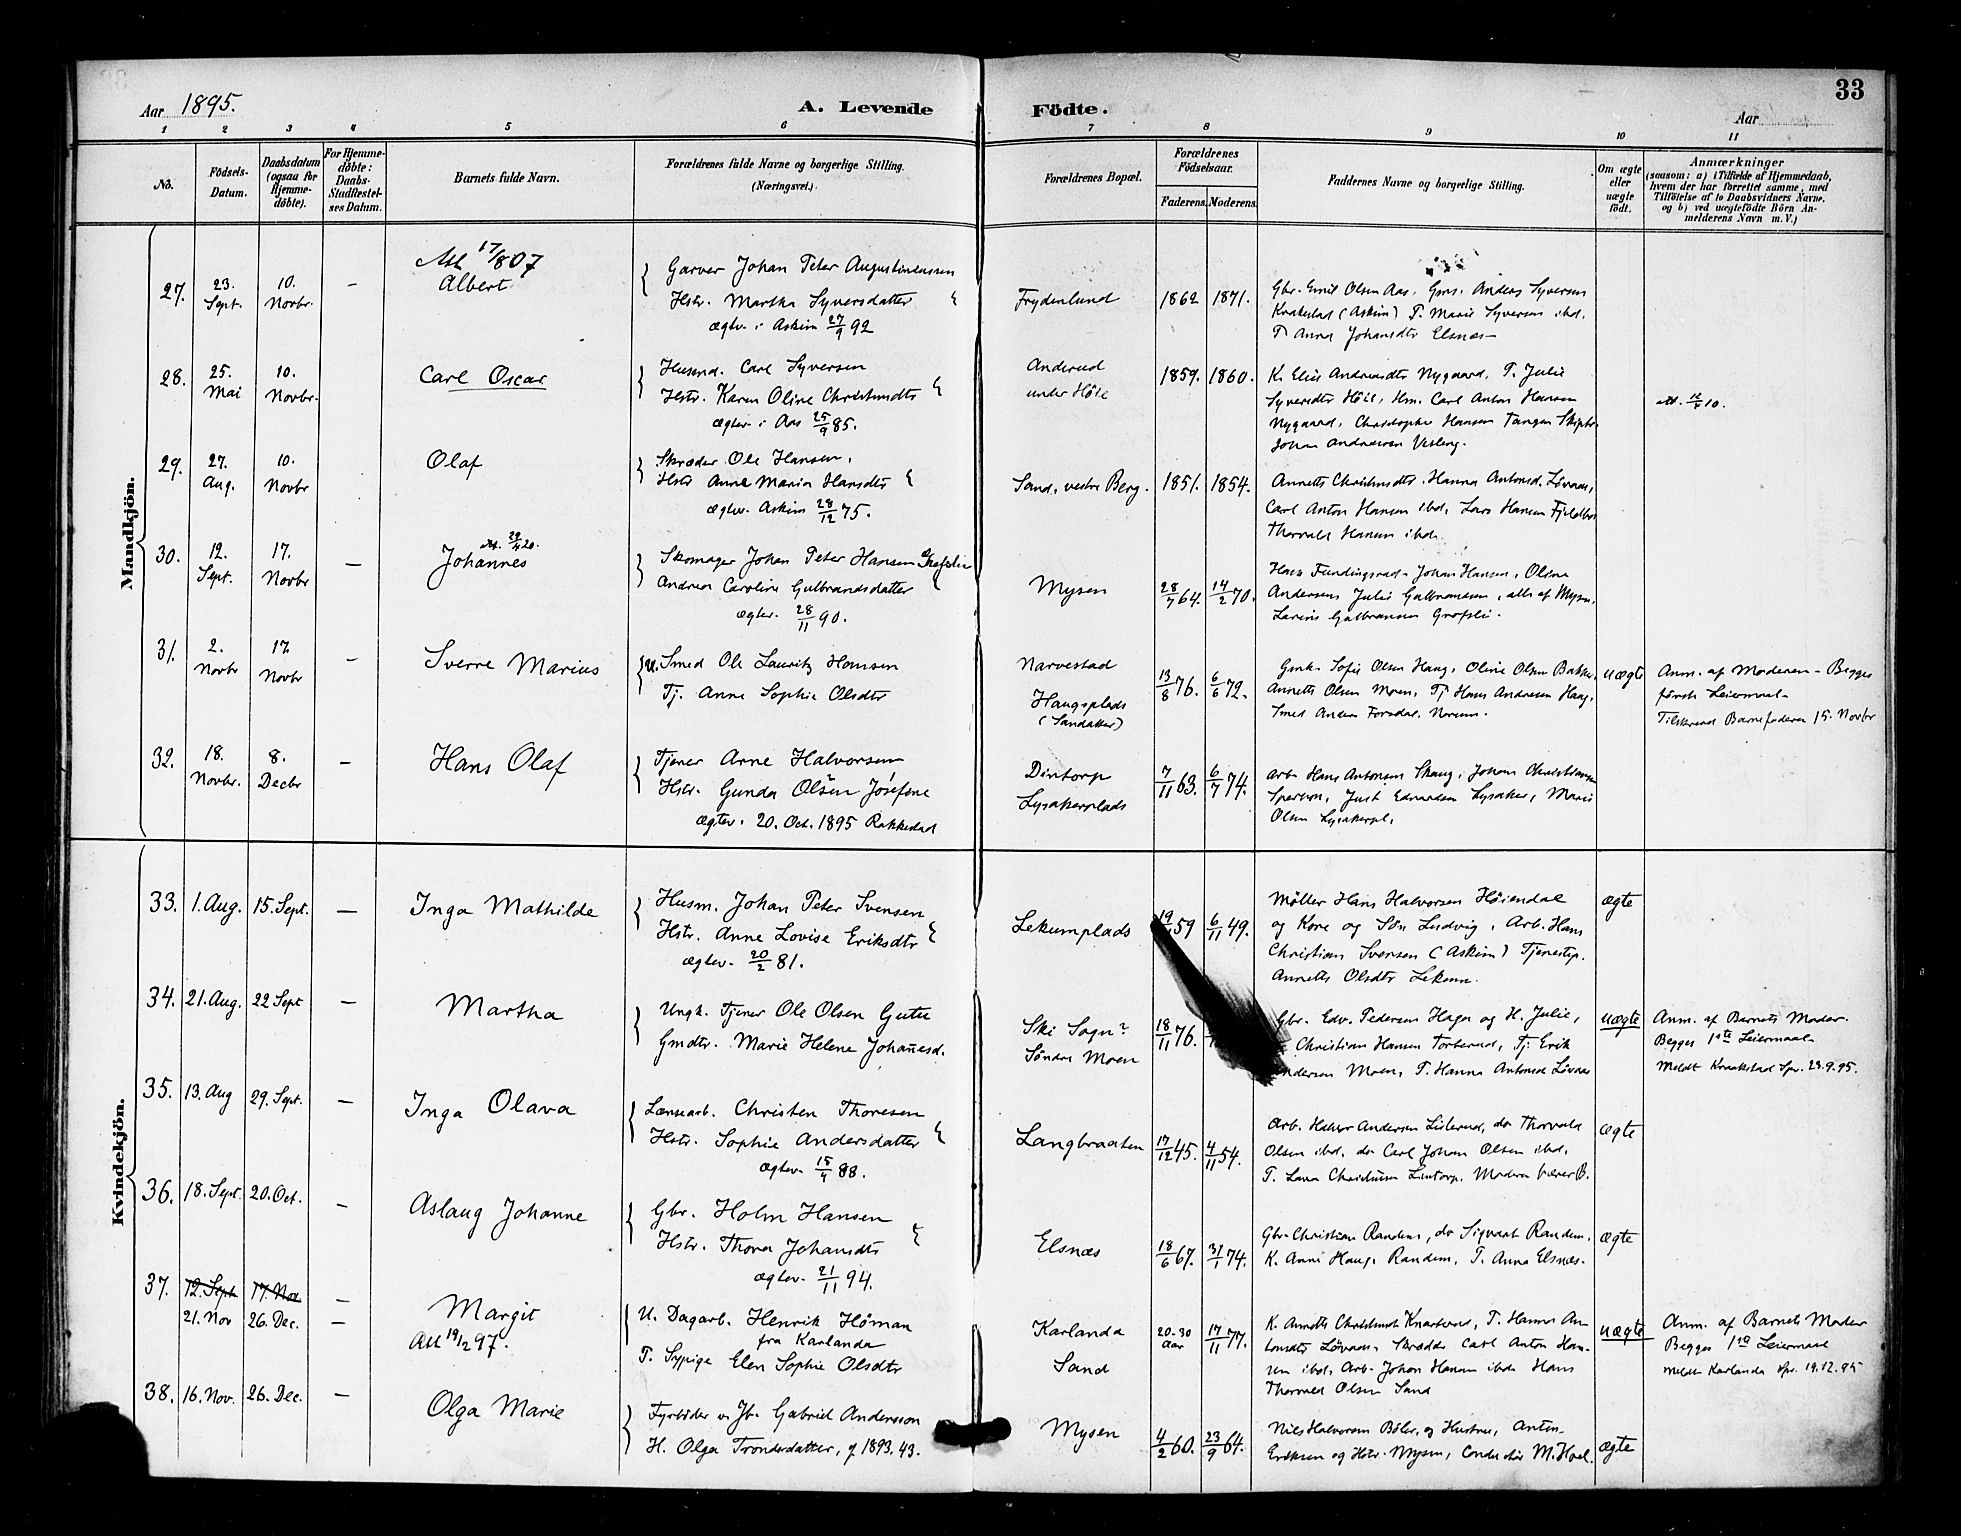 33
Aar 1895.
A. Levende Födte.
Aar
1 2 3 4 5 6 7 8 9 10 11
No.
Födsels-Datum.
Daabsdatum (ogsaa for Hjemme-döbte).
For Hjemme-döbte: Daabs-Stadfæstel-ses Datum.
Barnets fulde Navn.
Forældrenes fulde Navne og borgerlige Stilling. (Næringsvei.)
Forældrenes Bopæl.
Forældrenes Födselsaar.
Faderens. Moderens.
Faddernes Navne og borgerlige Stilling.
Om ægte eller uægte födt.
Anmærkninger
(saasom: a) i Tilfælde af Hjemmedaab, hvem der har forrettet samme, med Tilföielse af to Daabsvidners Navne, og b) ved uægtefödte Börn An-melderens Navn m. V.)
Mandkjön.
27. 23. Sept. 10. Novbr. –
Att 17/8 07
Albert
Garver Johan Peter Augustinussen
Hstr. Martha Syversdatter
Ægtev. i Askim 27/9 92
Frydenlund 1862 1871.
Gbr. Emil Olsen Aas, Gms. Anders Syversen
Krakestad (Askim) T. Marie Syversen ibd.
T. Anna Johansdtr Elsnæs
28. 25. Mai 10. Novbr.
Carl Oscar
Husmd. Carl Syversen
Hstr. Karen Oline Christensdtr
Ægtev. i Aas 25/9 85.
Anderud
under Höie 1859. 1860.
K. Elise Andreasdtr Nygaard, T. Julie
Syversdtr Höie, Hm. Carl Anton Hansen
Nygaard, Christopher Hansen Tangen
Johan Andreasen
10.
29. 27. Aug. 10. Novbr
Olaf
Skræder Ole Hansen,
Hstr Anne Maria Hansdtr
Ægtev. Askim 28/12 75.
Sand, vestre Berg. 1851. 1854.
Annette Christensdtr. Hanna Antonsd. Lövaas,
Carl Anton Hansen ibd, Lars Hansen
Thorvald Hansen ibd.
30. 12. Sept. 17. Novbr –
Att. 29/4 20.
Johannes
Skomager Johan Peter Hansen
Andrea Caroline Gulbrandsdatter
Ægtev. 28/11 90.
Mysen 28/7 64. 14/2 70.
Hans Johan Hansen, Olina
Andersens Julie Gulbransen, alle af Mysen,
Gulbransen
31. 2. Novbr 17. Novbr –
Sverre Marius
U. Smed Ole Lauritz Hansen
Tj. Anne Sophie Olsdtr
Narvestad
Haugsplads
(Sandaker)
13/8 76. 6/6 72.
Sofie Olsen Haug, Oline Olsen Bakke,
Annette Olsen Moen, Tj Hans Andresen Haug,
Smed Anders
uægte
Anm. af Moderen – Begges
første Leiermaal –
Tilskrevet Barnefaderen 15. Novbr
32. 18. Novbr. 8. Decbr –
Hans Olaf
Tjener Arne Halvorsen
Hstr. Gunda Olsen Josefine
Ægtev. 20. Oct. 1895 Rakkestad
Dintorp
Lysakerplads
7/11 63. 6/7 74.
Arb. Hans Antonsen Skaug, Johan Christiansen
Just Edvardsen Lysaker, Marie
Olsen Lysakerpl.
Kvindekjön.
33. 1. Aug. 15. Sept. –
Inga Mathilde
Husm. Johan Peter Svensen
Hstr. Anne Lovise Eriksdtr
Ægtev. 20/2 81.
Lekumplads 59 6/11 49.
Möller Hans Halvorsen Höiendal
og Kone og Sön Ludvig, Arb. Hans
Christian Svensen (Askim) Tjenestep.
Annette Olsdtr Lekum.
ægte
34. 21. Aug. 22 Sept –
Martha
Ungk. Tjener Ole Olsen Gutu
Gmdtr. Marie Helene Johannesd.
Ski Sogn?
Söndre Moen
18/11 76.
Gbr. Edv. Pedersen Hagen og H. Julie,
Christian Hansen Torberud, Tj. Erik
Andersen Moen, T. Hanna Antonsd Lövaas
uægte
Anm. af Barnets Moder.
Begges 1ste Leiermaal
Meldt Kraakstad Spr. 29.9.95.
35. 13. Aug 29. Sept. –
Inga Olava
Lænsearb. Christen Thoresen
Hstr. Sophie Andersdatter
Ægtev. 15/4 88.
Langbraaten 17/12 45. 4/11 54.
Arb. Andersen do Thorvald
Olsen ibd. do Carl Johan Olsen ibd,
T. Laura Christensen Lintorp. Moderen bærer B.
ægte
36. 18. Sept. 20. Oct. –
Aslaug Johanne
Gbr. Holm Hansen
Hstr. Thora Johansdtr
Ægtev. 21/11 94.
Elsnæs 18/6 67. 31/1 74.
Gbr. Christian Randem, do Sigvart Randem,
K. Anne Haug, Randem, T. Anna Elsnæs.
ægte
37. 12. Sept 17. Nov –
21. Nov 26. Dec. –
Margit
Att 19/12 97.
U. Dagarb. Henrik Höman
fra Karlanda
T. Sypige Elen Sophie Olsdtr
Karlanda
Sand
20-30 Aar 17/11 77.
K. Annette Christensd T. Hanna An-
tonsdtr Lövaas, Skrædder Carl Anton Han-
sen ibd, Arb. Johan Hansen ibd Hans
Thorvald Olsen Sand
uægte
Anm. af Barnets Moder
Begges 1ste Leiermaal
Meldt Karlanda Spr. 19.12.95
38. 16. Nov. 26. Dec. –
Olga Marie
Fyrböder v. Jb. Gabriel Andersson
H. Olga Trondsdatter, g 1893. 43.
Mysen 4/2 60. 23/9 64.
Nils Halvorsen Böler, og Hustru, Anton
Eriksen og Hstr. Mysen, Conductör M. Hoel.
ægte